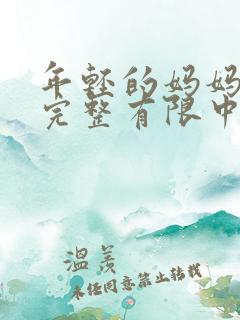 年轻的妈妈
完整有限中
温羡
未经同意禁止转载